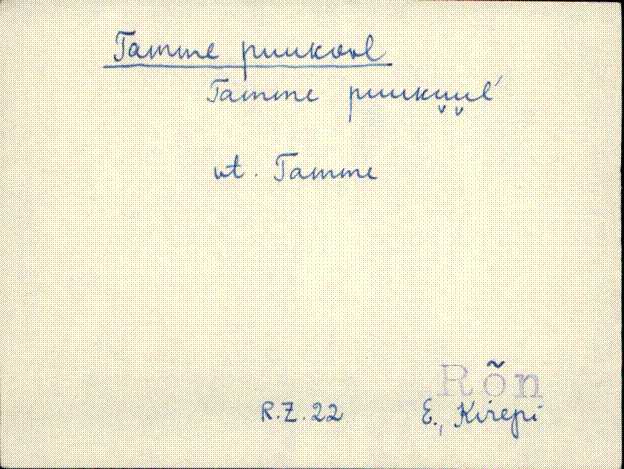 Tamme puukool
Tamme puuku̬u̬l´
vt. Tamme
Rõn
R.Z.22 E., Kirepi